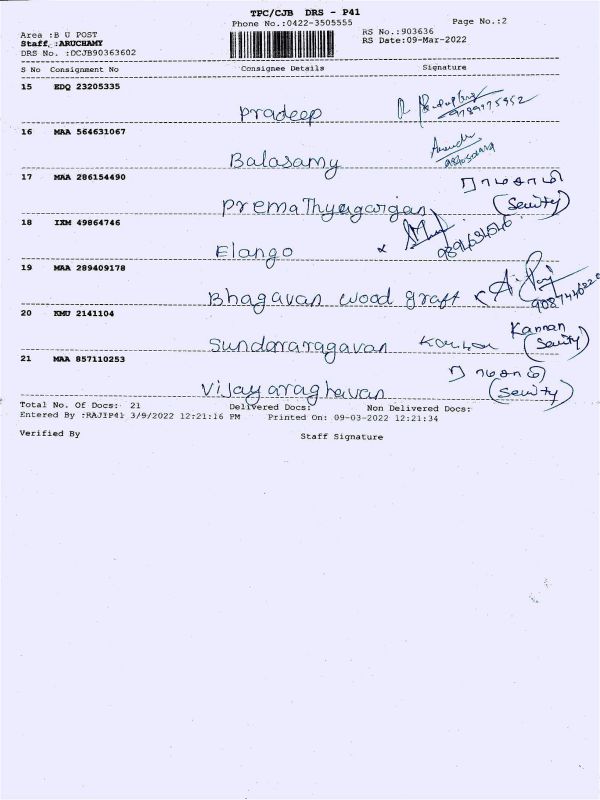 TPC/CJB DRS - P41
Phone No.:0422-3505555
Page No.:2
Area :B U POST
RS No.:903636
Staff :ARUCHAMY
RS Date:09-Mar-2022
DRS No. :DCJB90363602
S No Consignment No Consignee Details Signature
15 EDQ 23205335
Pradeep 9789775952
16 MAA 564631067
Balasamy
17 MAA 286154490 ராமசாமி
Premathyagargan (Seuity)
18 IXM 49864746
Elango
19 MAA 289409178
Bhagavan wood graft
20 KMU 2141104 Kannan
Sundararagavan (Seuity)
21 MAA 857110253 ராமசாமி
Vijayaraghavan (Seuity)
Total No. Of Docs: 21 Delivered Docs: Non Delivered Docs:
Entered By :RAJIP41 3/9/2022 12:21:16 PM Printed On: 09-03-2022 12:21:34
Verified By Staff Signature